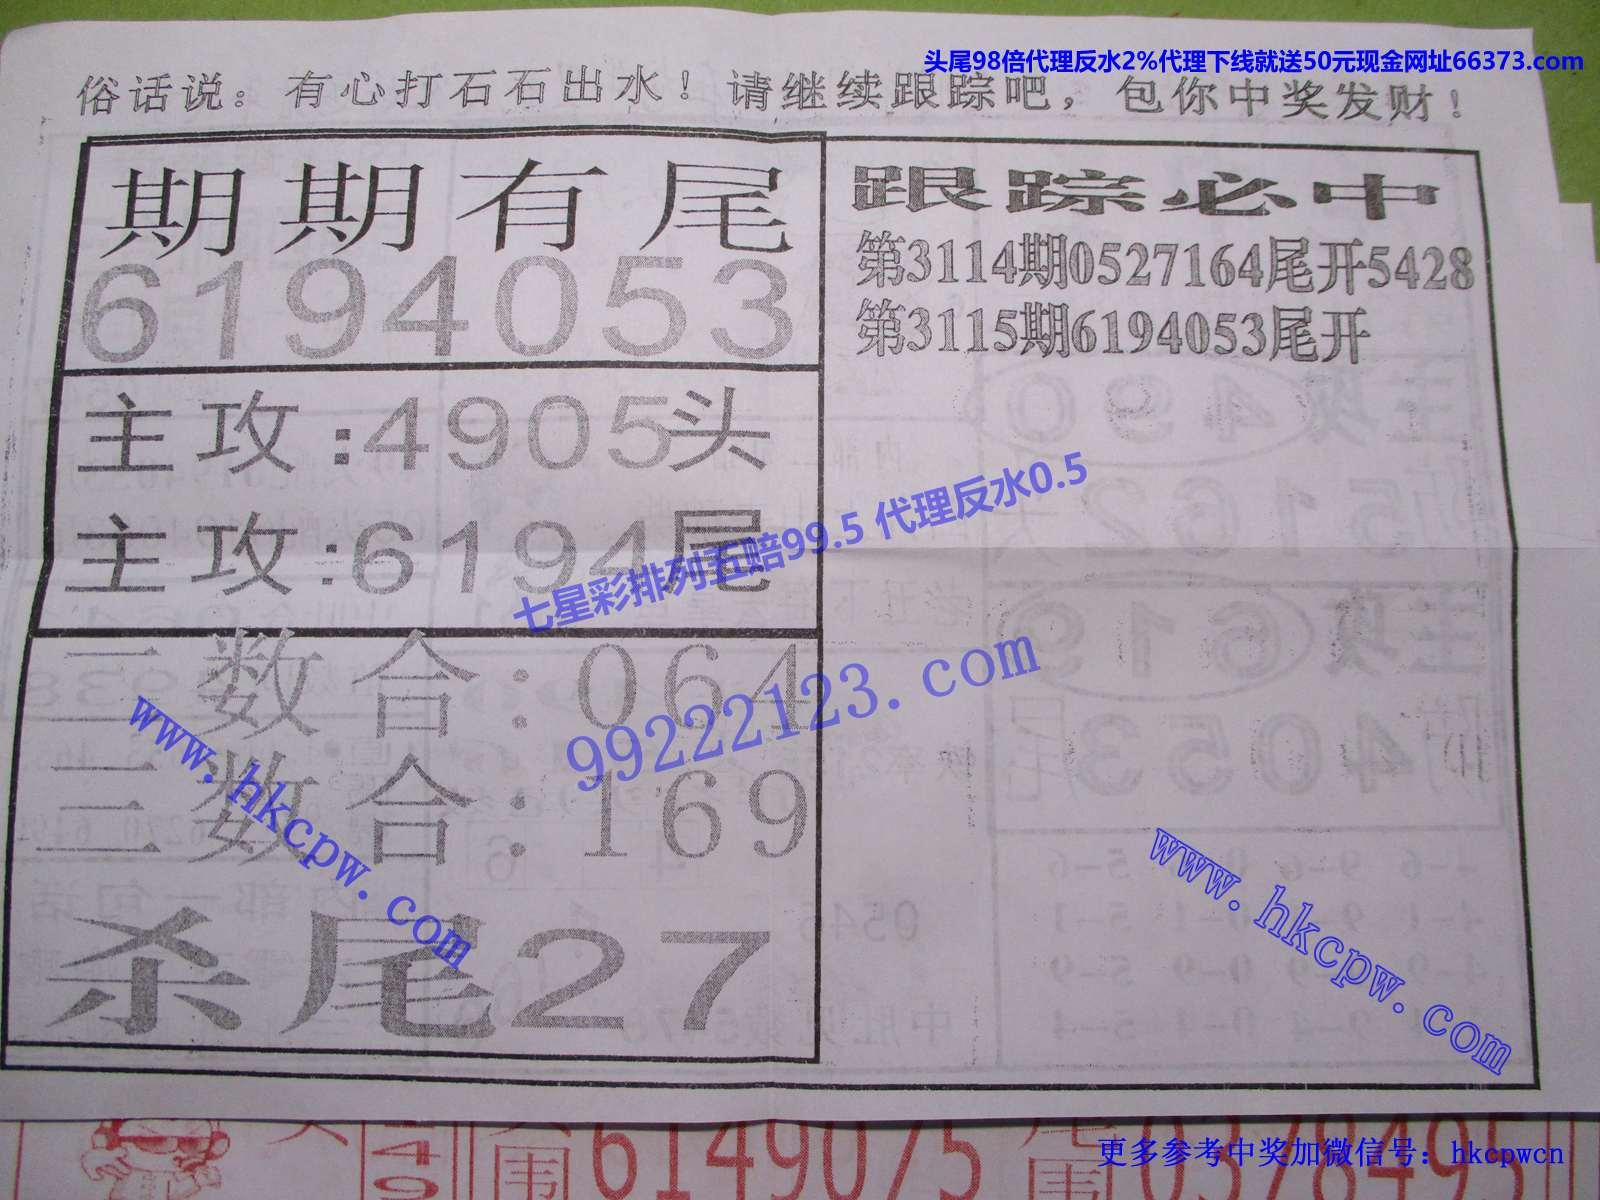 头尾98倍代理反水2%代理下线就送50元现金网址66373.com
俗话说：有心打石石出水！请继续跟踪吧，包你中奖发财！
期期有尾
6194053
主攻:4905头
主攻:6194尾
二数合:064
三数合:169
杀尾27
跟踪必中
第3114期0527164尾开5428
第3115期6194053尾开
七星彩排列五赔99.5 代理反水0.5
99222123.com
www.hkcpw.com
www.hkcpw.com
围6149075
围0378495
更多参考中奖加微信号：hkcpwcn